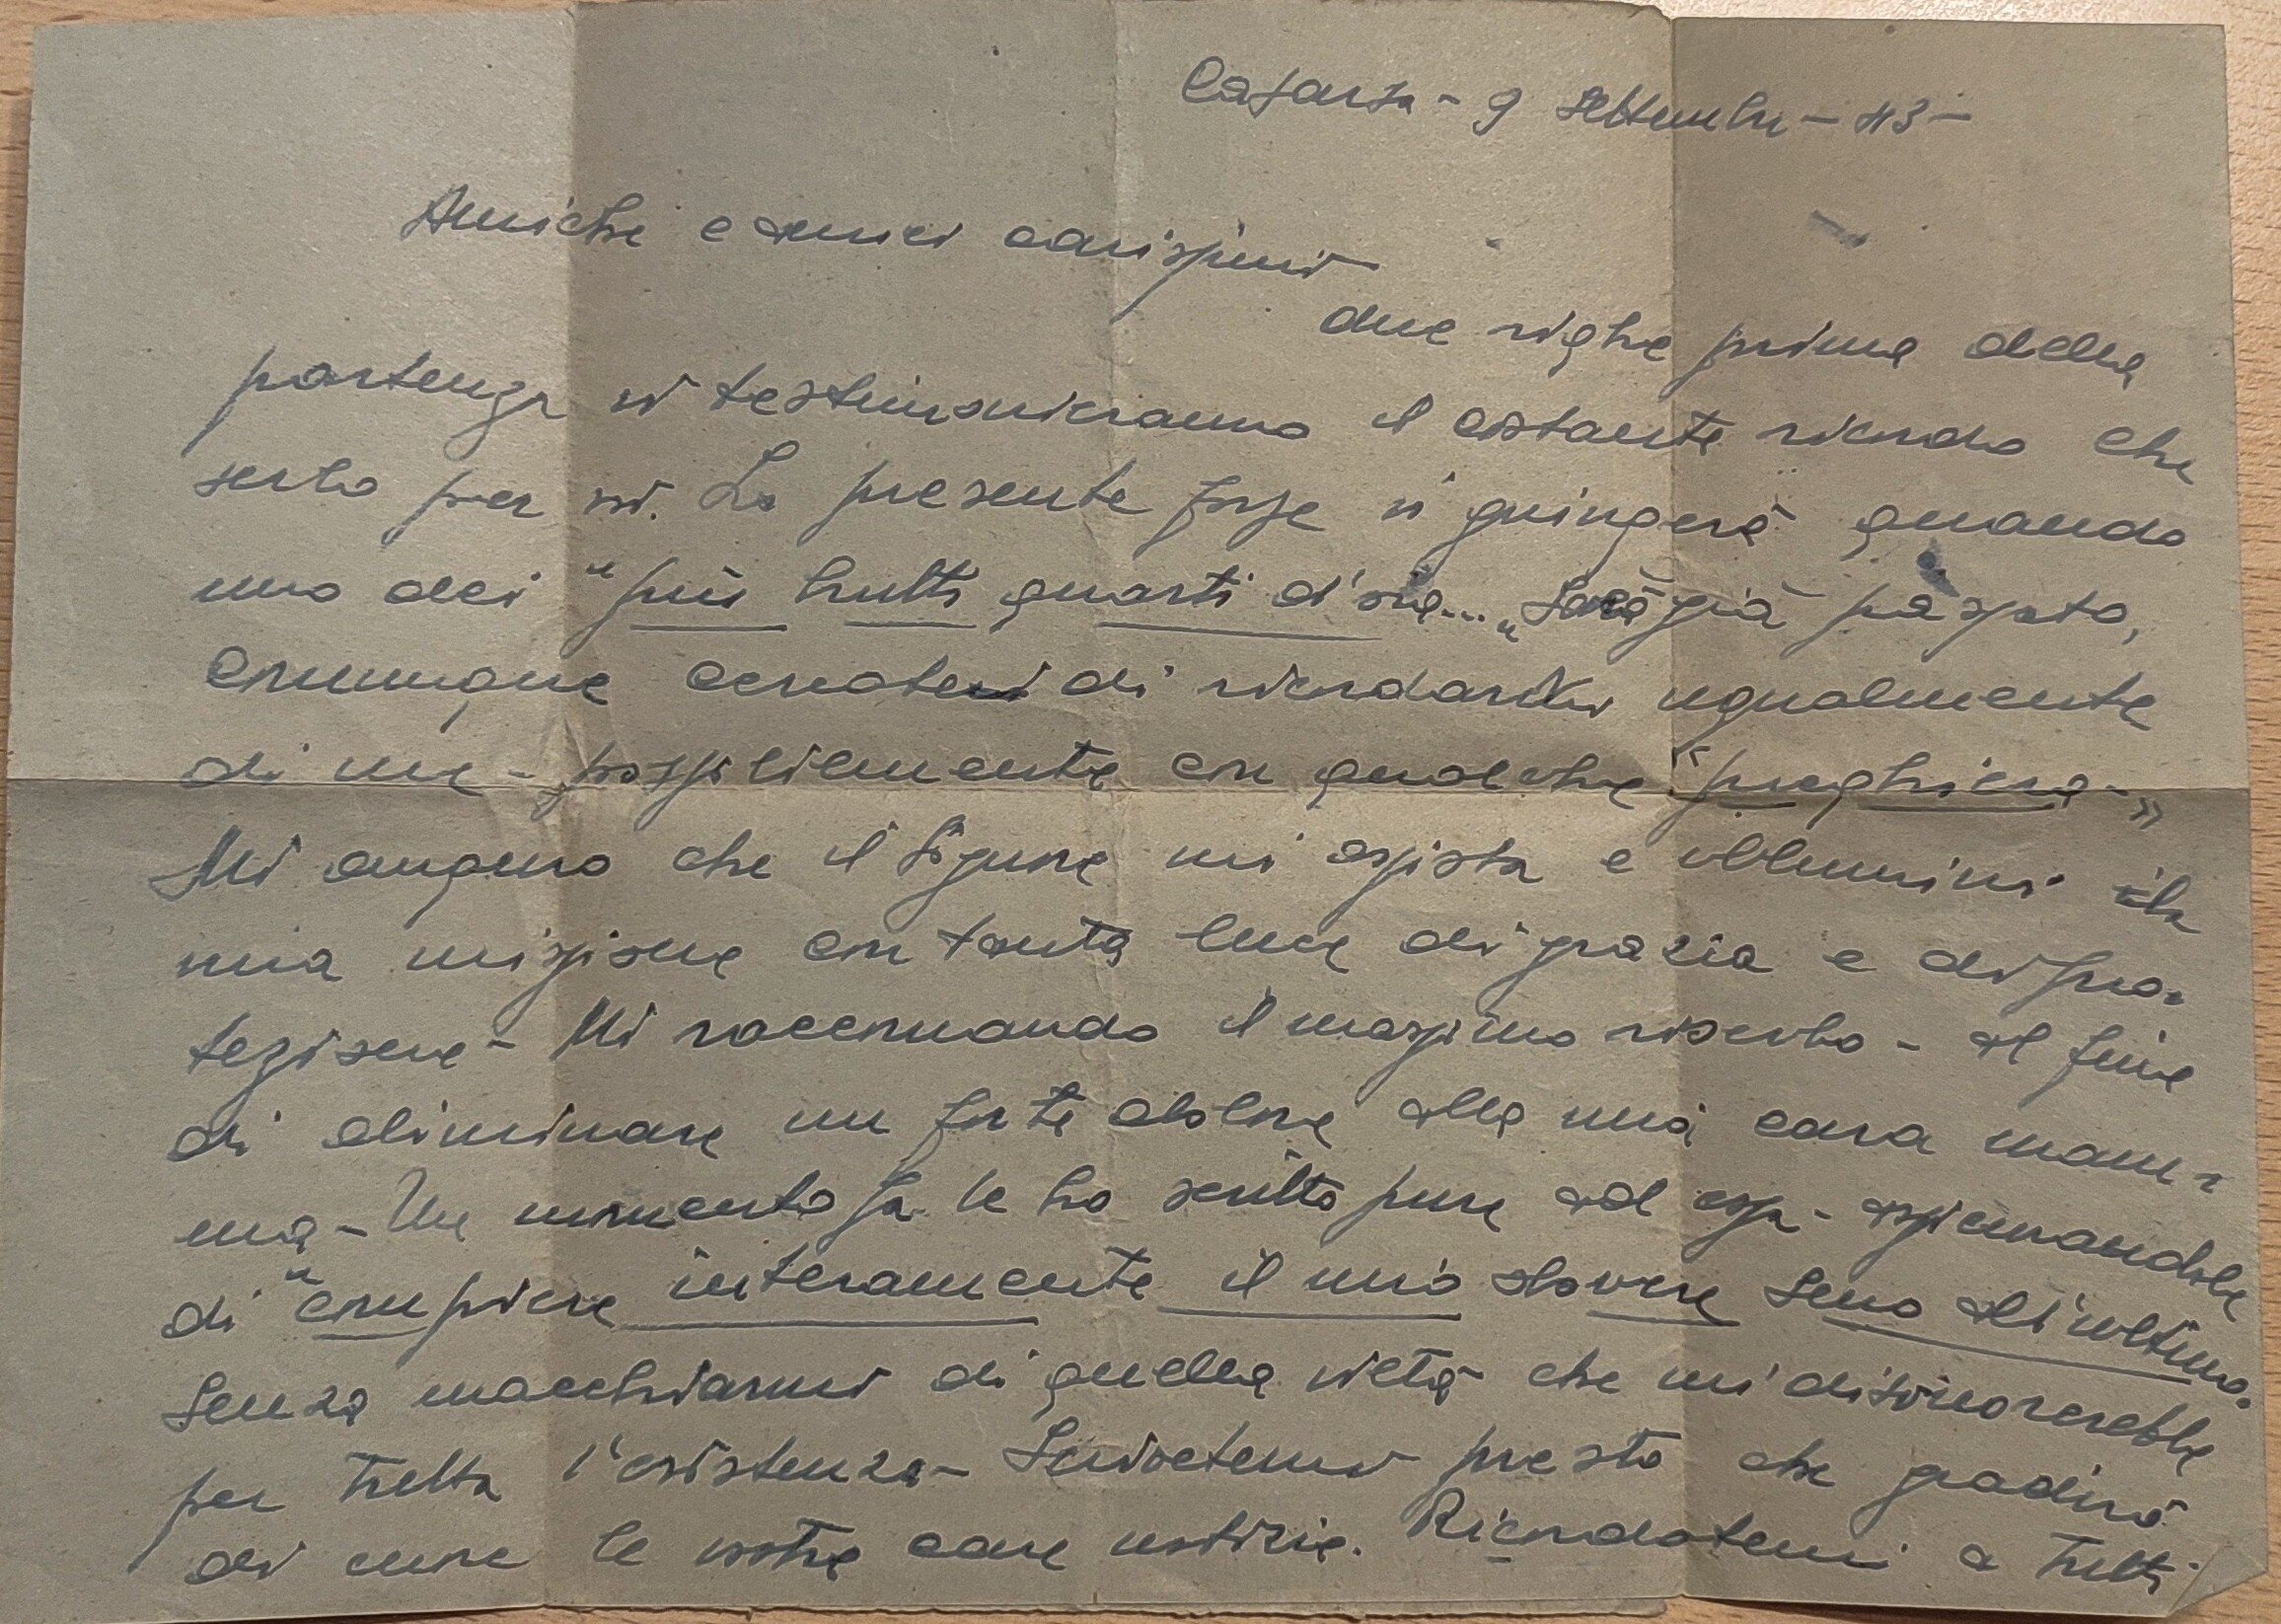 Casarsa - 9 Settembre - 43 -
Amiche e amici carissimi
due righe prima della
partenza vi testimonieranno il costante ricordo che
serbo per voi. La presente forse vi giungerà quando
uno dei "più brutti quarti d'ora..." sarà già passato,
comunque cercate di ricordarvi ugualmente
di me - possibilmente con qualche "preghiera -"
Mi auguro che il Signore mi assista e illumini la
mia missione con tanta luce di grazia e di pro-
tezione - Mi raccomando il massimo riserbo - al fine
di eliminare un forte dolore alla mia cara mam-
ma - Un momento fa le ho scritto pure ad essa - assicurandole
di "compiere interamente il mio dovere sino all'ultimo.
Senza macchiarmi di quella viltà che mi disonorerebbe
per tutta l'esistenza - Scrivetemi presto che gradirò
di cuore le vostre care notizie. Ricordatemi a tutti